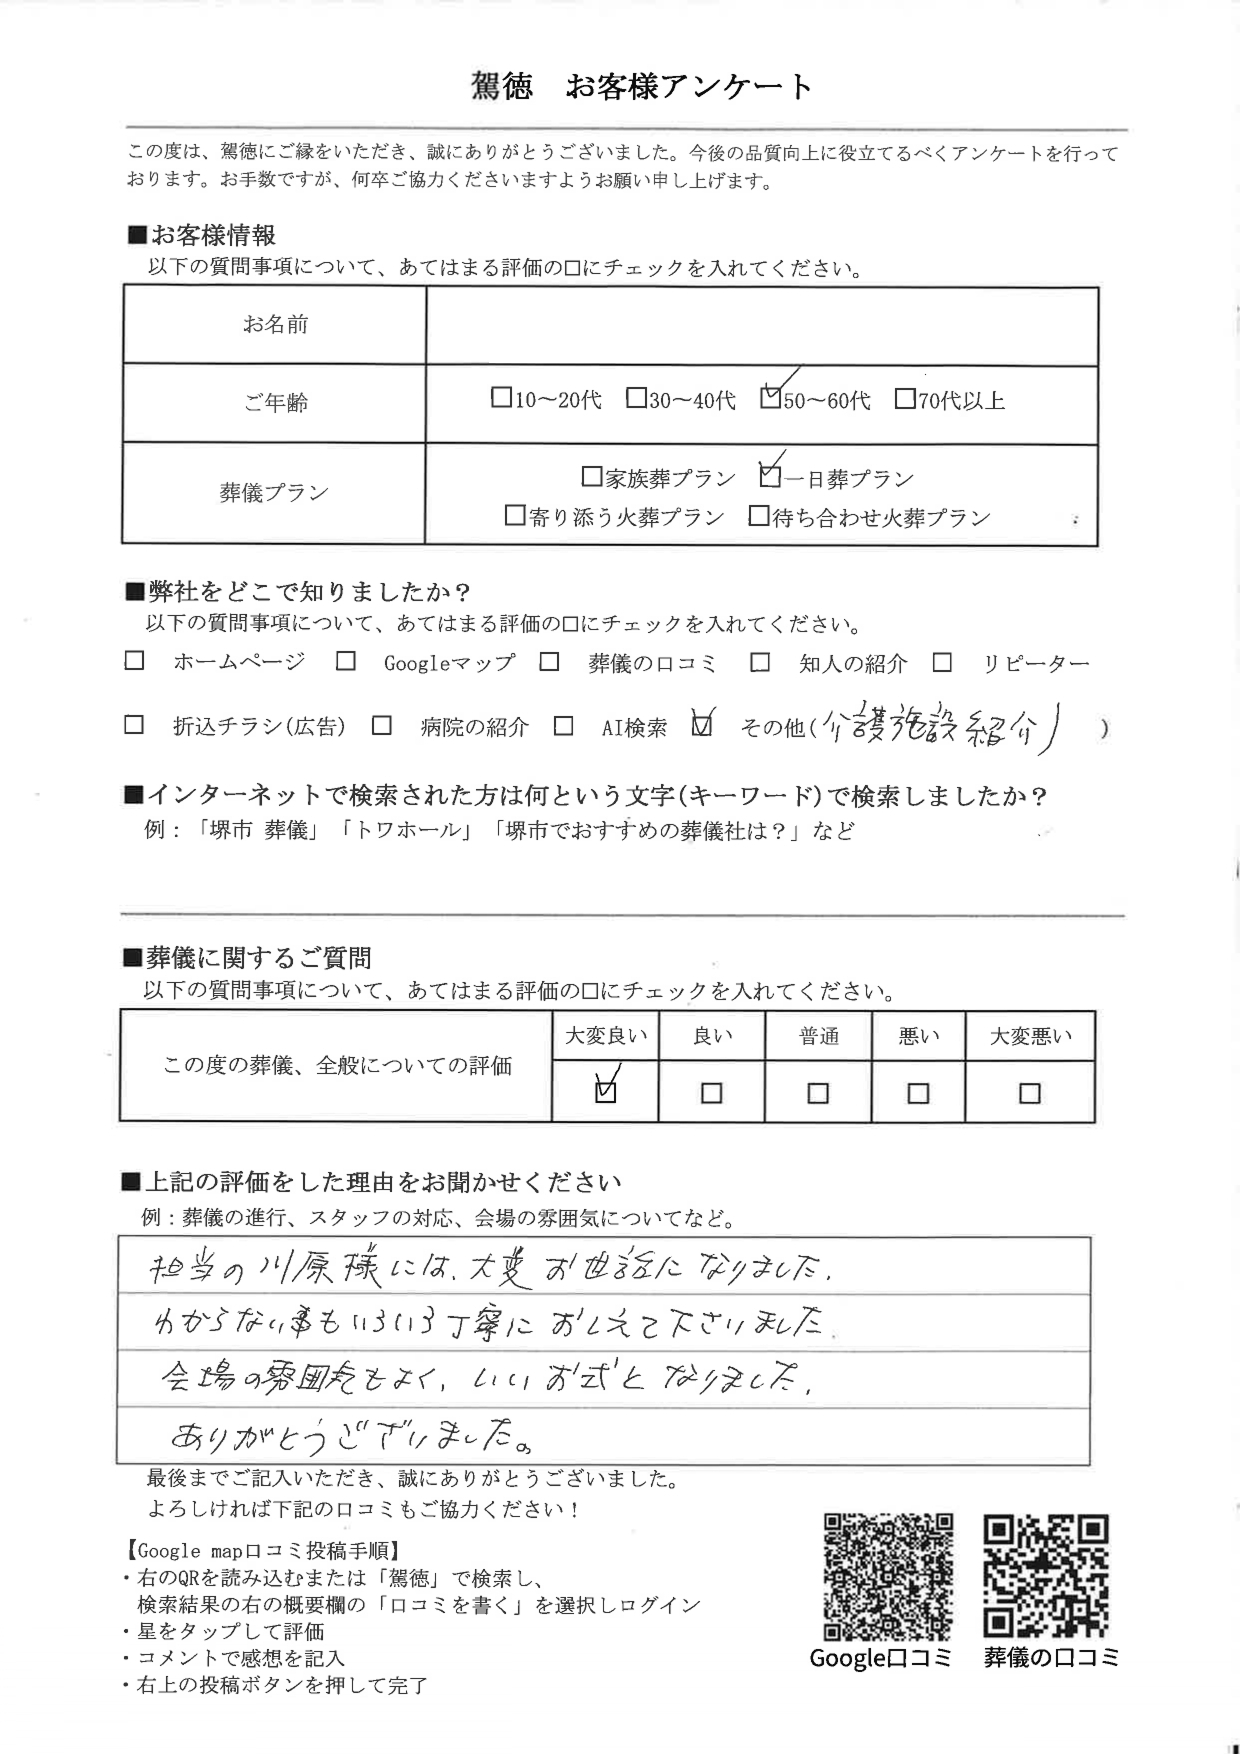 駕徳　お客様アンケート
この度は、駕徳にご縁をいただき、誠にありがとうございました。今後の品質向上に役立てるべくアンケートを行って
おります。お手数ですが、何卒ご協力くださいますようお願い申し上げます。
■お客様情報
以下の質問事項について、あてはまる評価の口にチェックを入れてください。
お名前
ご年齢 □10～20代 □30～40代 ☑50～60代 □70代以上
葬儀プラン □家族葬プラン ☑一日葬プラン
□寄り添う火葬プラン □待ち合わせ火葬プラン
■弊社をどこで知りましたか？
以下の質問事項について、あてはまる評価の口にチェックを入れてください。
□ ホームページ □ Googleマップ □ 葬儀の口コミ □ 知人の紹介 □ リピーター
□ 折込チラシ(広告) □ 病院の紹介 □ AI検索 ☑ その他(介護施設紹介) )
■インターネットで検索された方は何という文字(キーワード)で検索しましたか？
例：「堺市 葬儀」「トワホール」「堺市でおすすめの葬儀社は？」など
■葬儀に関するご質問
以下の質問事項について、あてはまる評価の口にチェックを入れてください。
この度の葬儀、全般についての評価 大変良い 良い 普通 悪い 大変悪い
☑ □ □ □ □
■上記の評価をした理由をお聞かせください
例：葬儀の進行、スタッフの対応、会場の雰囲気についてなど。
担当の川原様には、大変お世話になりました。
わからない事もいろいろ丁寧におしえて下さいました。
会場の雰囲気もよく、いいお式となりました。
ありがとうございました。
最後までご記入いただき、誠にありがとうございました。
よろしければ下記の口コミもご協力ください！
【Google map口コミ投稿手順】
・右のQRを読み込むまたは「駕徳」で検索し、
検索結果の右の概要欄の「口コミを書く」を選択しログイン
・星をタップして評価
・コメントで感想を記入
・右上の投稿ボタンを押して完了
Google口コミ 葬儀の口コミ